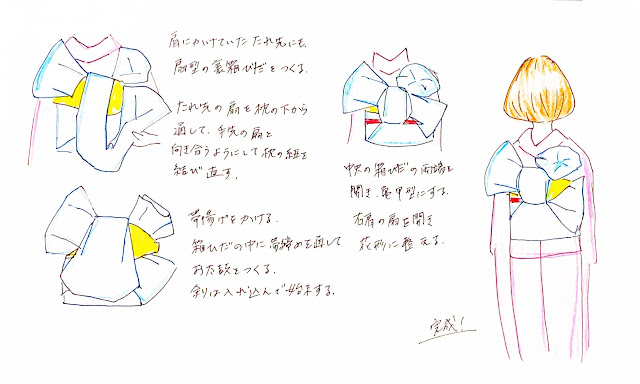 肩にかけていた たれ先にも
扇型の裏箱ひだをつくる。
たれ先の扇を枕の下から
通して、手先の扇と
向き合うようにして枕の紐を
結び直す。
帯揚げをかける。
箱ひだの中に帯締めを通して
お太鼓をつくる。
余りは入れ込んで始末する。
中央の箱ひだの両端を
開き、亀甲型にする。
右肩の扇を開き
花形に整える。
完成!